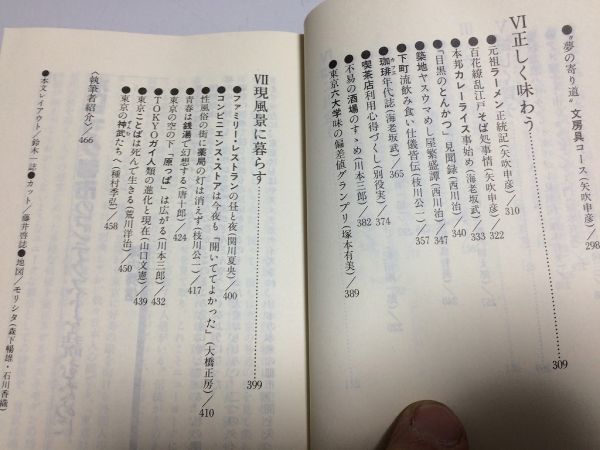 ●“夢の寄り道”文房具コース(矢吹申彦)/298
Ⅵ 正しく味わう……309
●元祖ラーメン正統記(矢吹申彦)/310
●百花繚乱江戸そば処事情(矢吹申彦)/322
●本邦カレーライス事始め(海老坂武)/333
●「目黒のとんかつ」見聞録(西川治)/340
●築地ヤスウマめし屋繁盛譚(西川治)/347
●下町流飲み食い仕儀皆伝(枝川公一)/357
●珈琲年代誌(海老坂武)/365
●喫茶店利用心得づくし(別役実)/374
●不易の酒場のすゝめ(川本三郎)/382
●東京六大学味の偏差値グランプリ(塚本有美)/389
Ⅶ 現風景に暮らす……399
●ファミリー・レストランの昼と夜(関川夏央)/400
●コンビニエンス・ストアは今夜も「開いててよかった」(大橋正房)/410
●性風俗の街に薬局の灯は消えず(枝川公一)/417
●青春は銭湯で幻想する(唐十郎)/424
●東京の空の下「原っぱ」は広がる(川本三郎)/432
●TOKYOガイ人類の進化と現在(山口文憲)/439
●東京ことばは死んで生きる(荒川洋治)/450
●東京の神武たちへ(種村季弘)/458
〈執筆者紹介〉/466
●本文レイアウト/鈴木一誌●カット/藤井啓誌●地図/モリシタ(森下暢雄・石川香織)